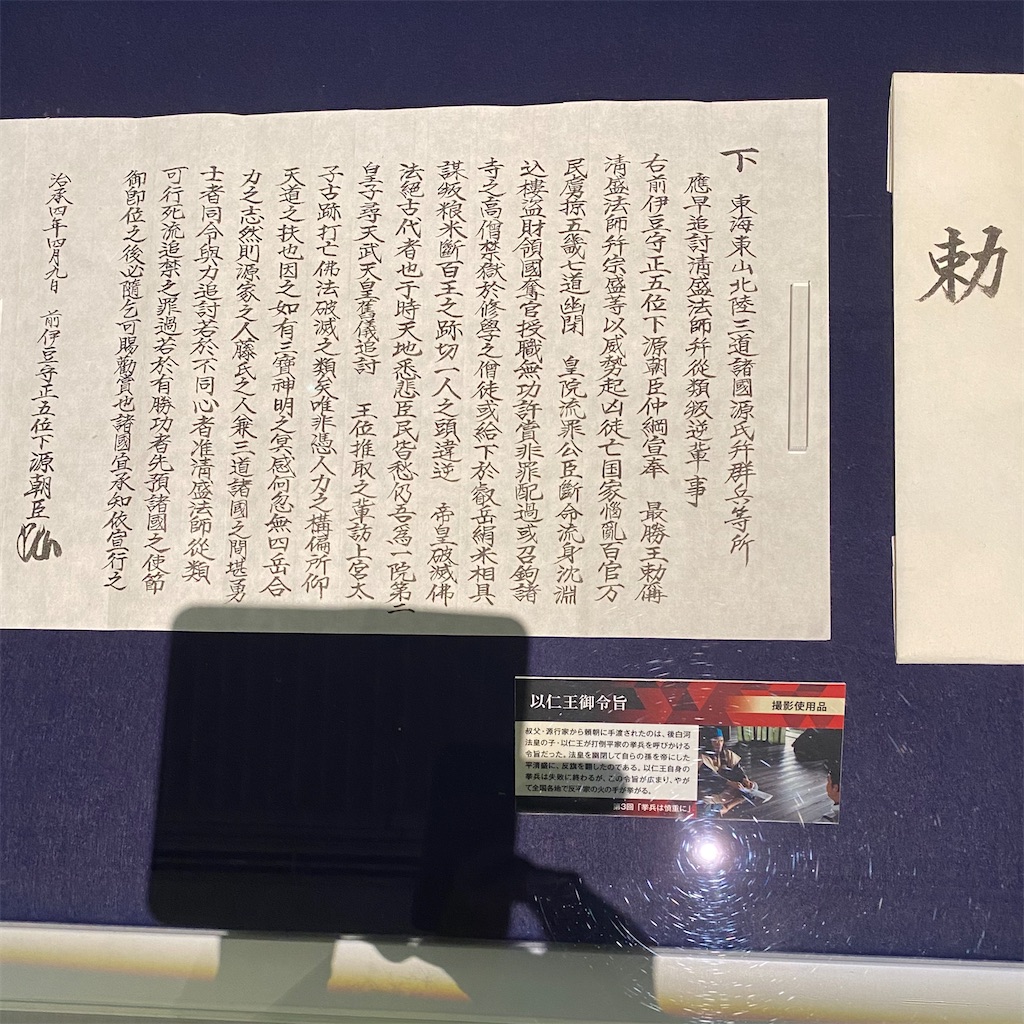 勅
下 東海東山北陸三道諸國源氏幷群兵等所
應早追討淸盛法師幷從類叛逆輩事
右前伊豆守正五位下源朝臣仲綱宣奉 最勝王勅偁
淸盛法師幷宗盛等以威勢起凶徒亡国家惱亂百官万
民虜掠五畿七道幽閇 皇院流罪公臣斷命流身沈淵
込樓盗財領國奪官授職無功許賞非罪配過或召鉤諸
寺之高僧禁獄於修學之僧徒或給下於叡岳絹米相具
謀叛粮米斷百王之跡切一人之頭違逆 帝皇破滅佛
法絕古代者也于時天地悉悲臣民皆愁仍吾爲一院第二
皇子尋天武天皇舊儀追討 王位推取之輩訪上宮太
子古跡打亡佛法破滅之類矣唯非憑人力之構偏所仰
天道之扶也因之如有三寶神明之冥感何忽無四岳合
力之志然則源家之人藤氏之人兼三道諸國之間堪勇
士者同令與力追討若於不同心者准淸盛法師從類
可行死流追禁之罪過若於有勝功者先預諸國之使節
御卽位之後必隨乞可賜勸賞也諸國宜承知依宣行之
治承四年四月九日 前伊豆守正五位下源朝臣
以仁王御令旨 撮影使用品
叔父・源行家から頼朝に手渡されたのは、後白河
法皇の子・以仁王が打倒平家の挙兵を呼びかける
令旨だった。法皇を幽閉して自らの孫を帝にした
平清盛に、反旗を翻したのである。以仁王自身の
挙兵は失敗に終わるが、この令旨が広まり、やが
て全国各地で反平家の火の手が挙がる。
第3回「挙兵は慎重に」